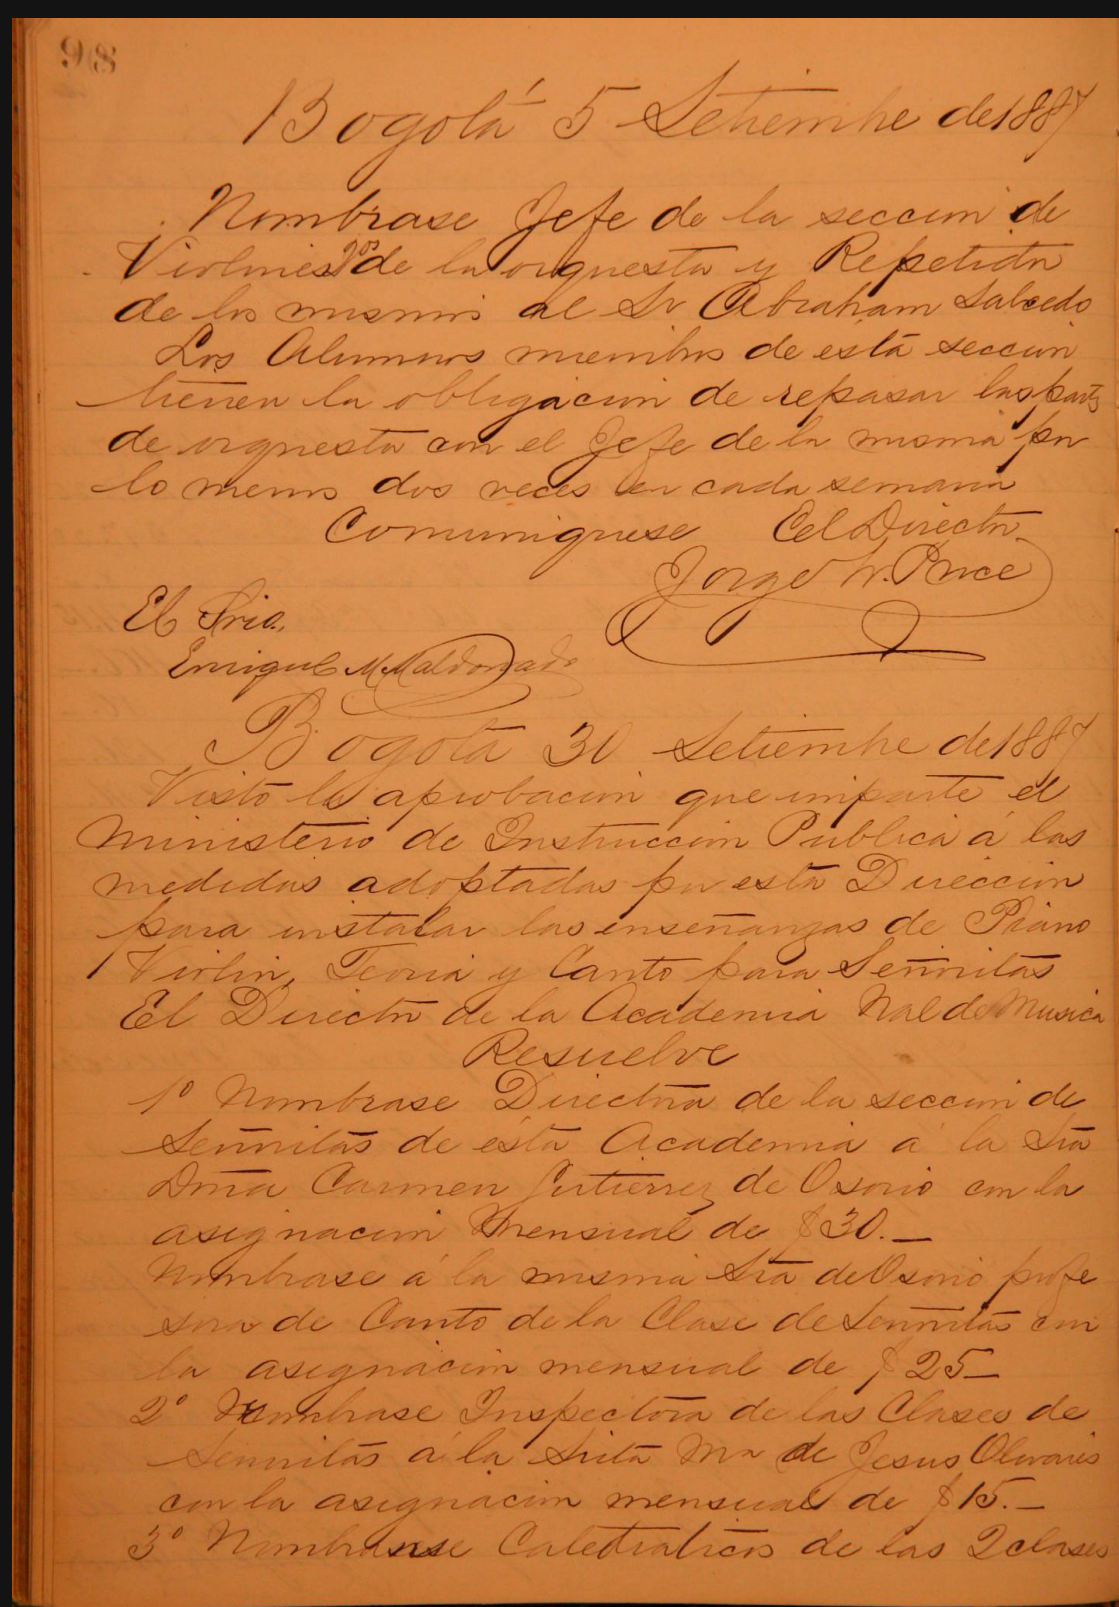 98
Bogotá 5 Setiembre de 1887
Nombrase Jefe de la seccion de
Violines 2os de la orquesta y Repetidor
de los mismos al Sr Abraham Salcedo
Los Alumnos miembros de está seccion
tienen la obligacion de repasar las partes
de orquesta con el Jefe de la misma por
lo menos dos veces en cada semana
Comuniquese El Director
Jorge W. Price
El Srio.
Enrique M Maldonado
Bogotá 30 Setiembre de 1887
Visto la aprobacion que imparte el
Ministerio de Instruccion Publica á las
medidas adoptadas por esta Direccion
para instalar las enseñanzas de Piano
Violin, Teoria y Canto para Señoritas
El Director de la Academia Nal de Musica
Resuelve
1º Nombrase Directora de la seccion de
Señoritas de ésta Academia á la Sra
Doña Carmen Gutierrez de Osorio con la
asignacion mensual de $30.—
Nombrase á la misma Sra de Osorio profe
sora de Canto de la Clase de Señoritas con
la asignacion mensual de $25—
2º Nombrase Inspectora de las Clases de
Señoritas á la Srita Ma de Jesus Olivares
con la asignacion mensual de $15.—
3º Nombranse Catedraticos de las 2 clases